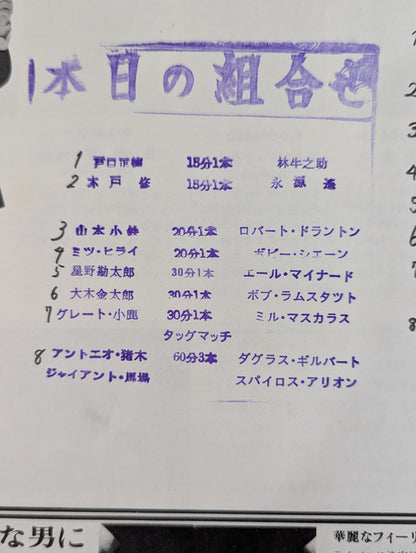 本日の組合せ
1 戸口正徳 15分1本 林牛之助
2 木戸修 15分1本 永源遙
3 山本小鉄 20分1本 ロバート・ドラントン
4 ミツ・ヒライ 20分1本 ボビー・シエーン
5 星野勘太郎 30分1本 エール・マイナード
6 大木金太郎 30分1本 ボブ・ラムスタット
7 グレート・小鹿 30分1本 ミル・マスカラス
タッグマッチ
8 アントニオ・猪木 60分3本 ダグラス・ギルバート
ジャイアント・馬場 スパイロス・アリオン
な男に
華麗なフィーリ
1
2
3
4
5
6
7
8